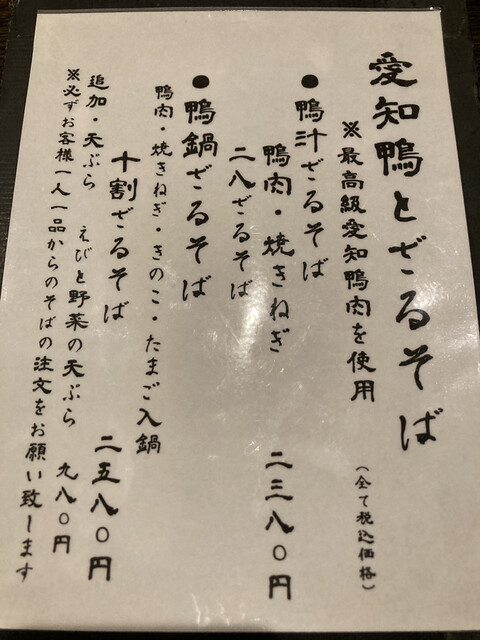 愛知鴨とざるそば
※最高級愛知鴨肉を使用
(全て税込価格)
●鴨汁ざるそば
鴨肉・焼きねぎ
二三八〇円
二八ざるそば
●鴨鍋ざるそば
鴨肉・焼きねぎ・きのこ・たまご入鍋
十割ざるそば
二五八〇円
追加・天ぷら
えびと野菜の天ぷら
九八〇円
※必ずお客様一人一品からのそばの注文をお願い致します